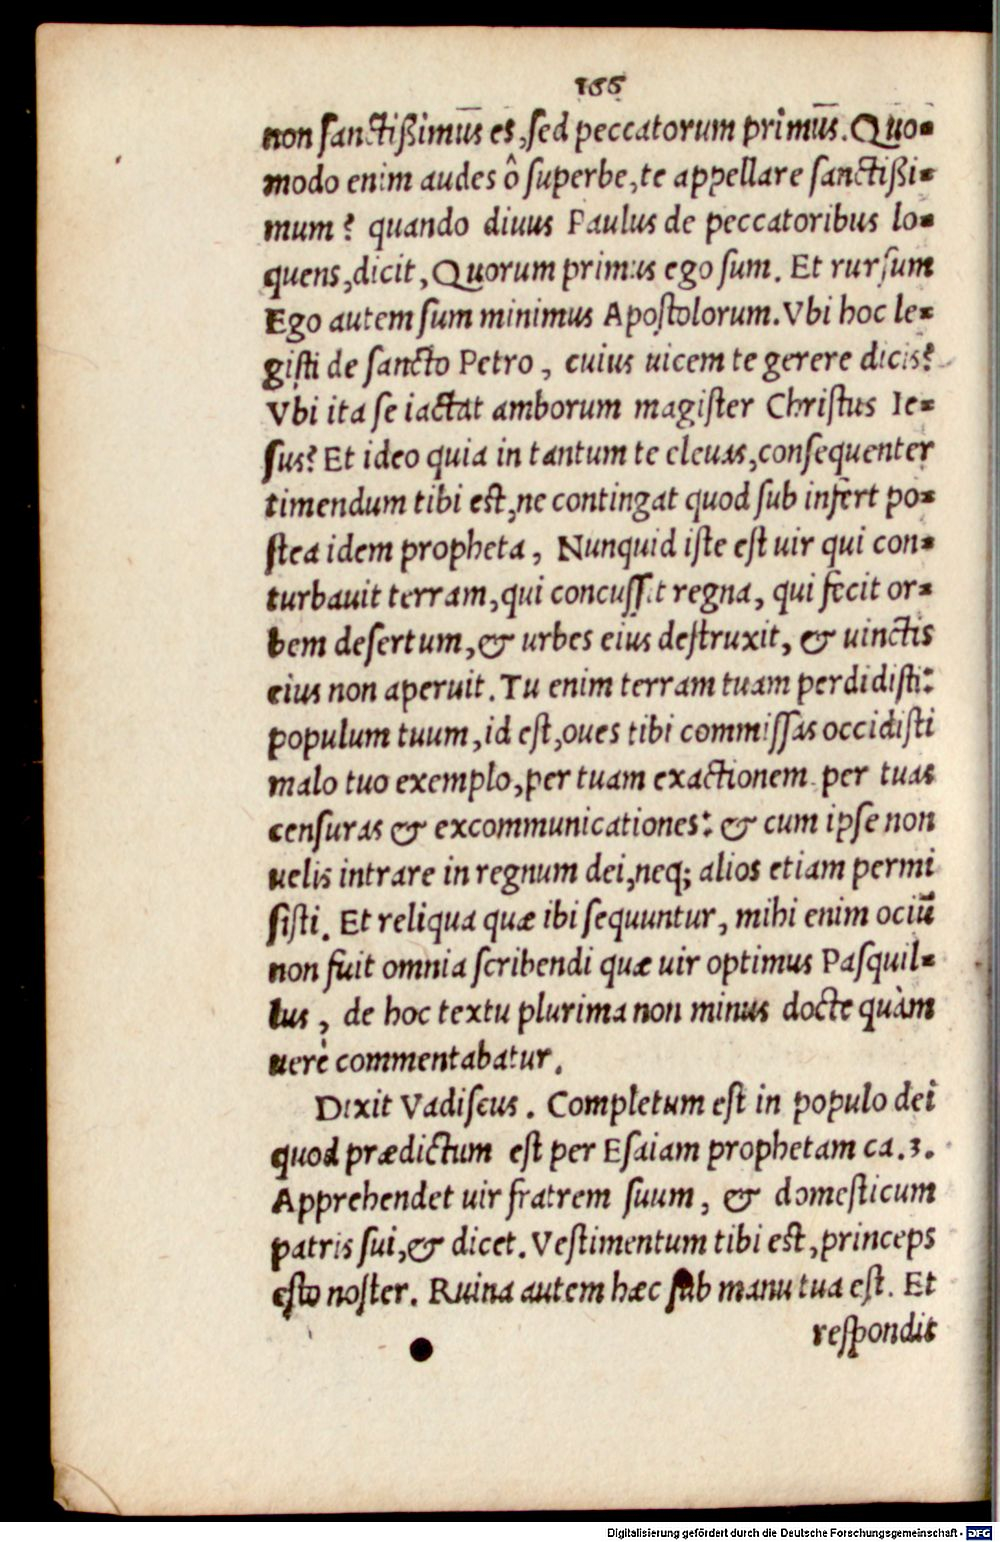 166
non sanctißimus̄ es, sed peccatorum primus̄. Quo-
modo enim audes ô superbe, te appellare sanctißi-
mum? quando diuus Paulus de peccatoribus lo-
quens, dicit, Quorum primus ego sum. Et rursum
Ego autem sum minimus Apostolorum. Vbi hoc le-
gisti de sancto Petro, cuius uicem te gerere dicis?
Vbi ita se iactat amborum magister Christus Ie-
sus? Et ideo quia in tantum te eleuas, consequenter
timendum tibi est, ne contingat quod sub infert po-
stea idem propheta, Nunquid iste est uir qui con-
turbauit terram, qui concussit regna, qui fecit or-
bem desertum, & urbes eius destruxit, & uinctis
eius non aperuit. Tu enim terram tuam perdidisti:
populum tuum, id est, oues tibi commissas occidisti
malo tuo exemplo, per tuam exactionem per tuas
censuras & excommunicationes: & cum ipse non
uelis intrare in regnum dei, neq; alios etiam permi
sisti. Et reliqua quæ ibi sequuntur, mihi enim ociū
non fuit omnia scribendi quæ uir optimus Pasquil-
lus, de hoc textu plurima non minus docte quàm
uerè commentabatur.
Dixit Vadiscus. Completum est in populo dei
quod prædictum est per Esaiam prophetam ca. 3.
Apprehendet uir fratrem suum, & domesticum
patris sui, & dicet. Vestimentum tibi est, princeps
esto noster. Ruina autem hæc sub manu tua est. Et
respondit
Digitalisierung gefördert durch die Deutsche Forschungsgemeinschaft - DFG